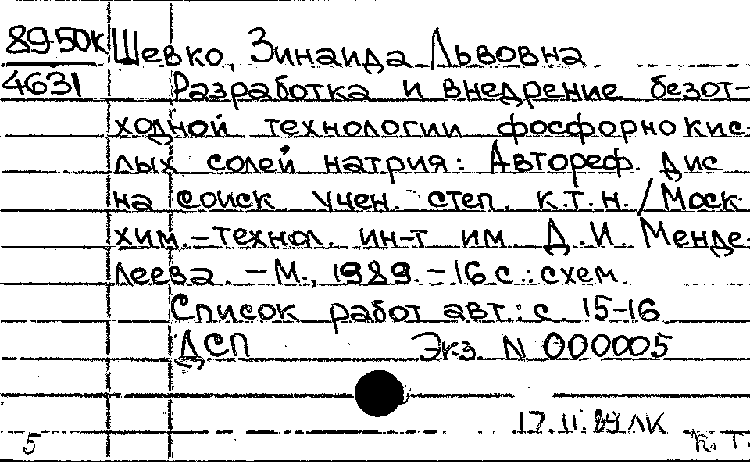 89-50к Шевко, Зинаида Львовна
4631 Разработка и внедрение безот-
ходной технологии фосфорнокис-
лых солей натрия: Автореф. Дис
на соиск учен. степ. к.т.н. / Моск
хим.-технол. ин-т им Д.И. Менде-
леева. - М., 1989. - 16 с.: схем.
Список работ авт.: с. 15-16
ДСП Экз. N 000005
17.11.89 ЛК
5 К. Т.